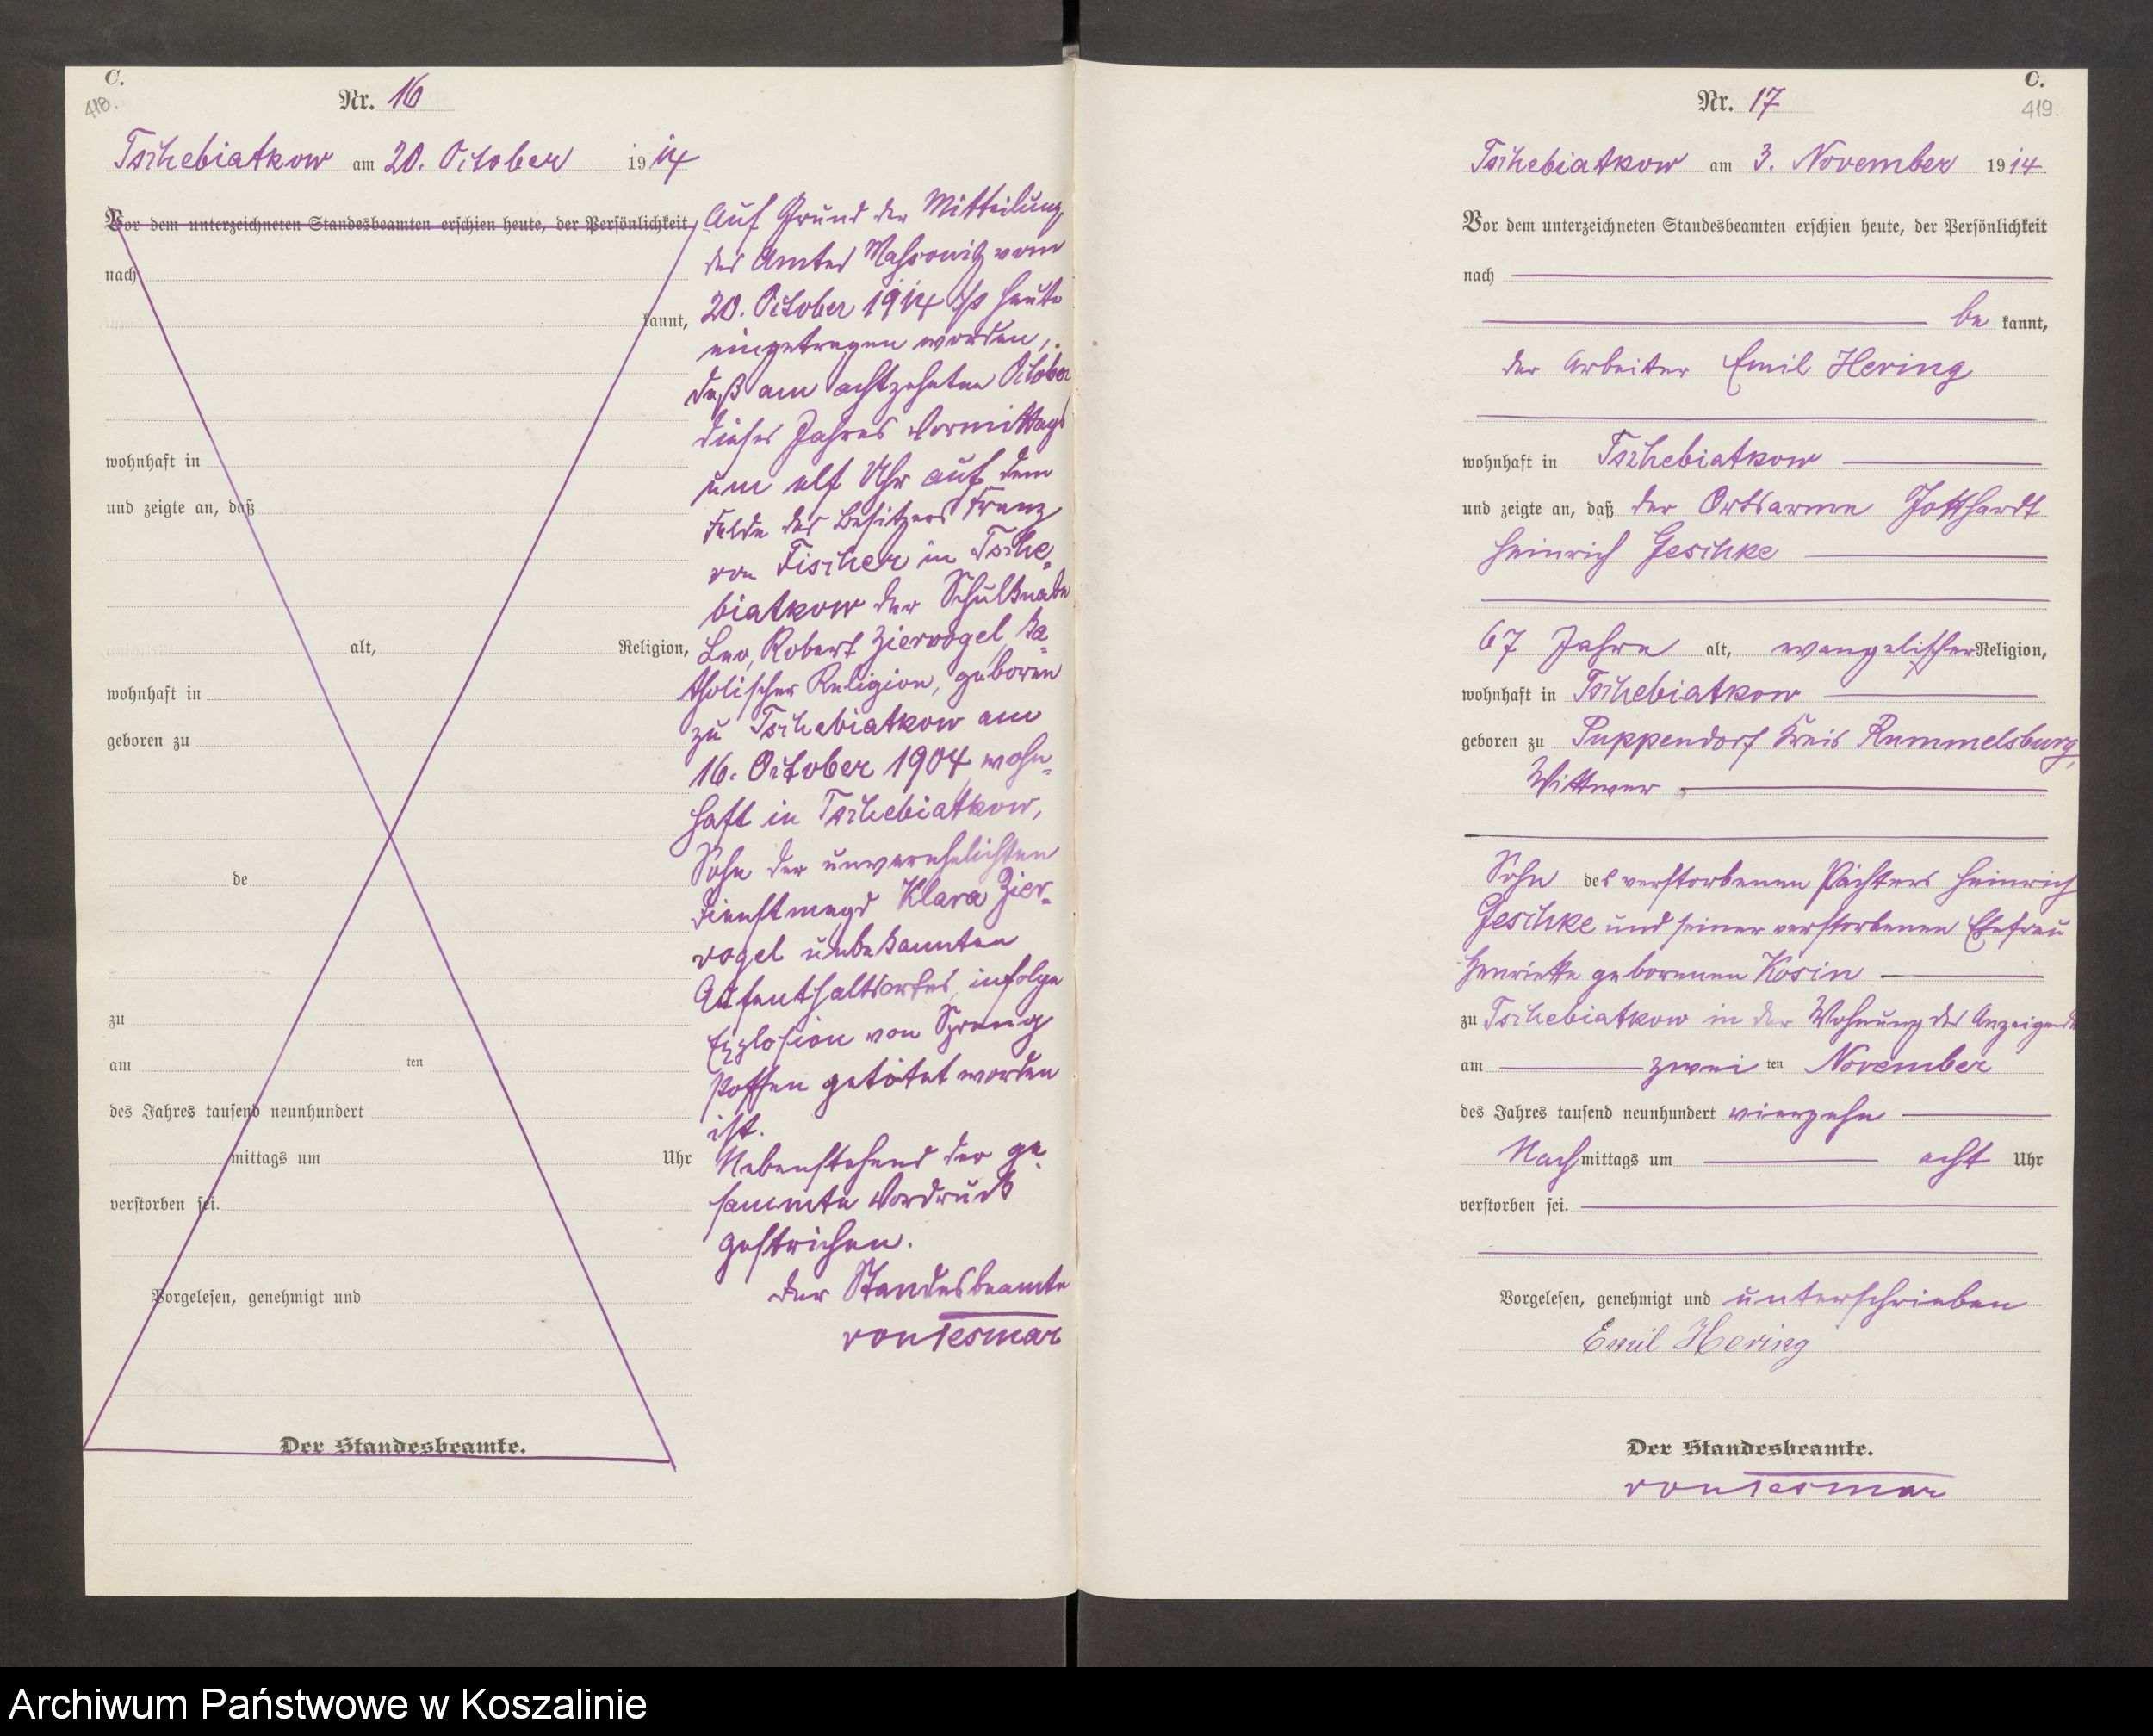 C.
418.
Nr. 16
Tschebiatkow am 20. October 1914
Vor dem unterzeichneten Standesbeamten erschien heute, der Persönlichkeit
nach
kannt,
wohnhaft in
und zeigte an, daß
alt, Religion,
wohnhaft in
geboren zu
de
zu
am ten
des Jahres tausend neunhundert
mittags um Uhr
verstorben sei.
Vorgelesen, genehmigt und
Der Standesbeamte.
Auf Grund der Mitteilung
des Amtes Massowitz vom
20. October 1914 ist heute
eingetragen worden,
daß am achtzehnten October
dieses Jahres Vormittags
um elf Uhr auf dem
Felde des Besitzers Franz
von Fischer in Tsche-
biatkow der Schulknabe
Leo, Robert Ziervogel, ka-
tholischer Religion, geboren
zu Tschebiatkow am
16. October 1904, wohn-
haft in Tschebiatkow,
Sohn der unverehelichten
Dienstmagd Klara Zier-
vogel unbekannten
Aufenthaltsortes, infolge
Explosion von Spreng
stoffen getötet worden
ist.
Nebenstehend der ge-
sammte Vordruck
gestrichen.
Der Standesbeamte
von Tesmar
C.
419.
Nr. 17
Tschebiatkow am 3. November 1914
Vor dem unterzeichneten Standesbeamten erschien heute, der Persönlichkeit
nach
be kannt,
der Arbeiter Emil Hering
wohnhaft in Tschebiatkow
und zeigte an, daß der Ortsarme Gotthardt
Heinrich Geschke
67 Jahre alt, evangelischer Religion,
wohnhaft in Tschebiatkow
geboren zu Puppendorf Kreis Rummelsburg,
Wittwer
Sohn des verstorbenen Pächters Heinrich
Geschke und seiner verstorbenen Ehefrau
Henriette geborenen Kosin
zu Tschebiatkow in der Wohnung des Anzeigenden
am zwei ten November
des Jahres tausend neunhundert vierzehn
Nachmittags um acht Uhr
verstorben sei.
Vorgelesen, genehmigt und unterschrieben
Emil Hering
Der Standesbeamte.
von Tesmar
Archiwum Państwowe w Koszalinie